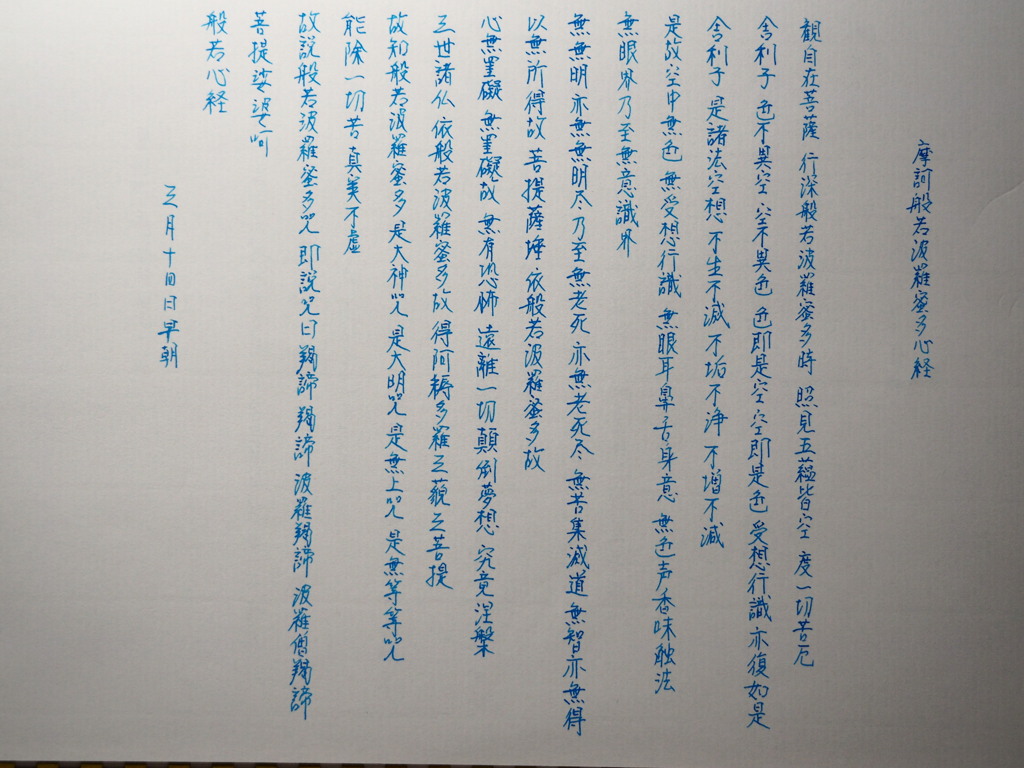 摩訶般若波羅蜜多心経
観自在菩薩 行深般若波羅蜜多時 照見五蘊皆空 度一切苦厄
舎利子 色不異空 空不異色 色即是空 空即是色 受想行識 亦復如是
舎利子 是諸法空想 不生不滅 不垢不浄 不増不減
是故空中 無色 無受想行識 無眼耳鼻舌身意 無色声香味触法
無眼界乃至無意識界
無無明 亦無無明尽 乃至無老死 亦無老死尽 無苦集滅道 無智亦無得
以無所得故 菩提薩埵 依般若波羅蜜多故
心無罣礙 無罣礙故 無有恐怖 遠離一切顛倒夢想 究竟涅槃
三世諸仏 依般若波羅蜜多故 得阿耨多羅三藐三菩提
故知般若波羅蜜多 是大神呪 是大明呪 是無上呪 是無等等呪
能除一切苦 真実不虚
故説般若波羅蜜多呪 即説呪曰 羯諦 羯諦 波羅羯諦 波羅僧羯諦
菩提娑婆呵
般若心経
三月十四日早朝